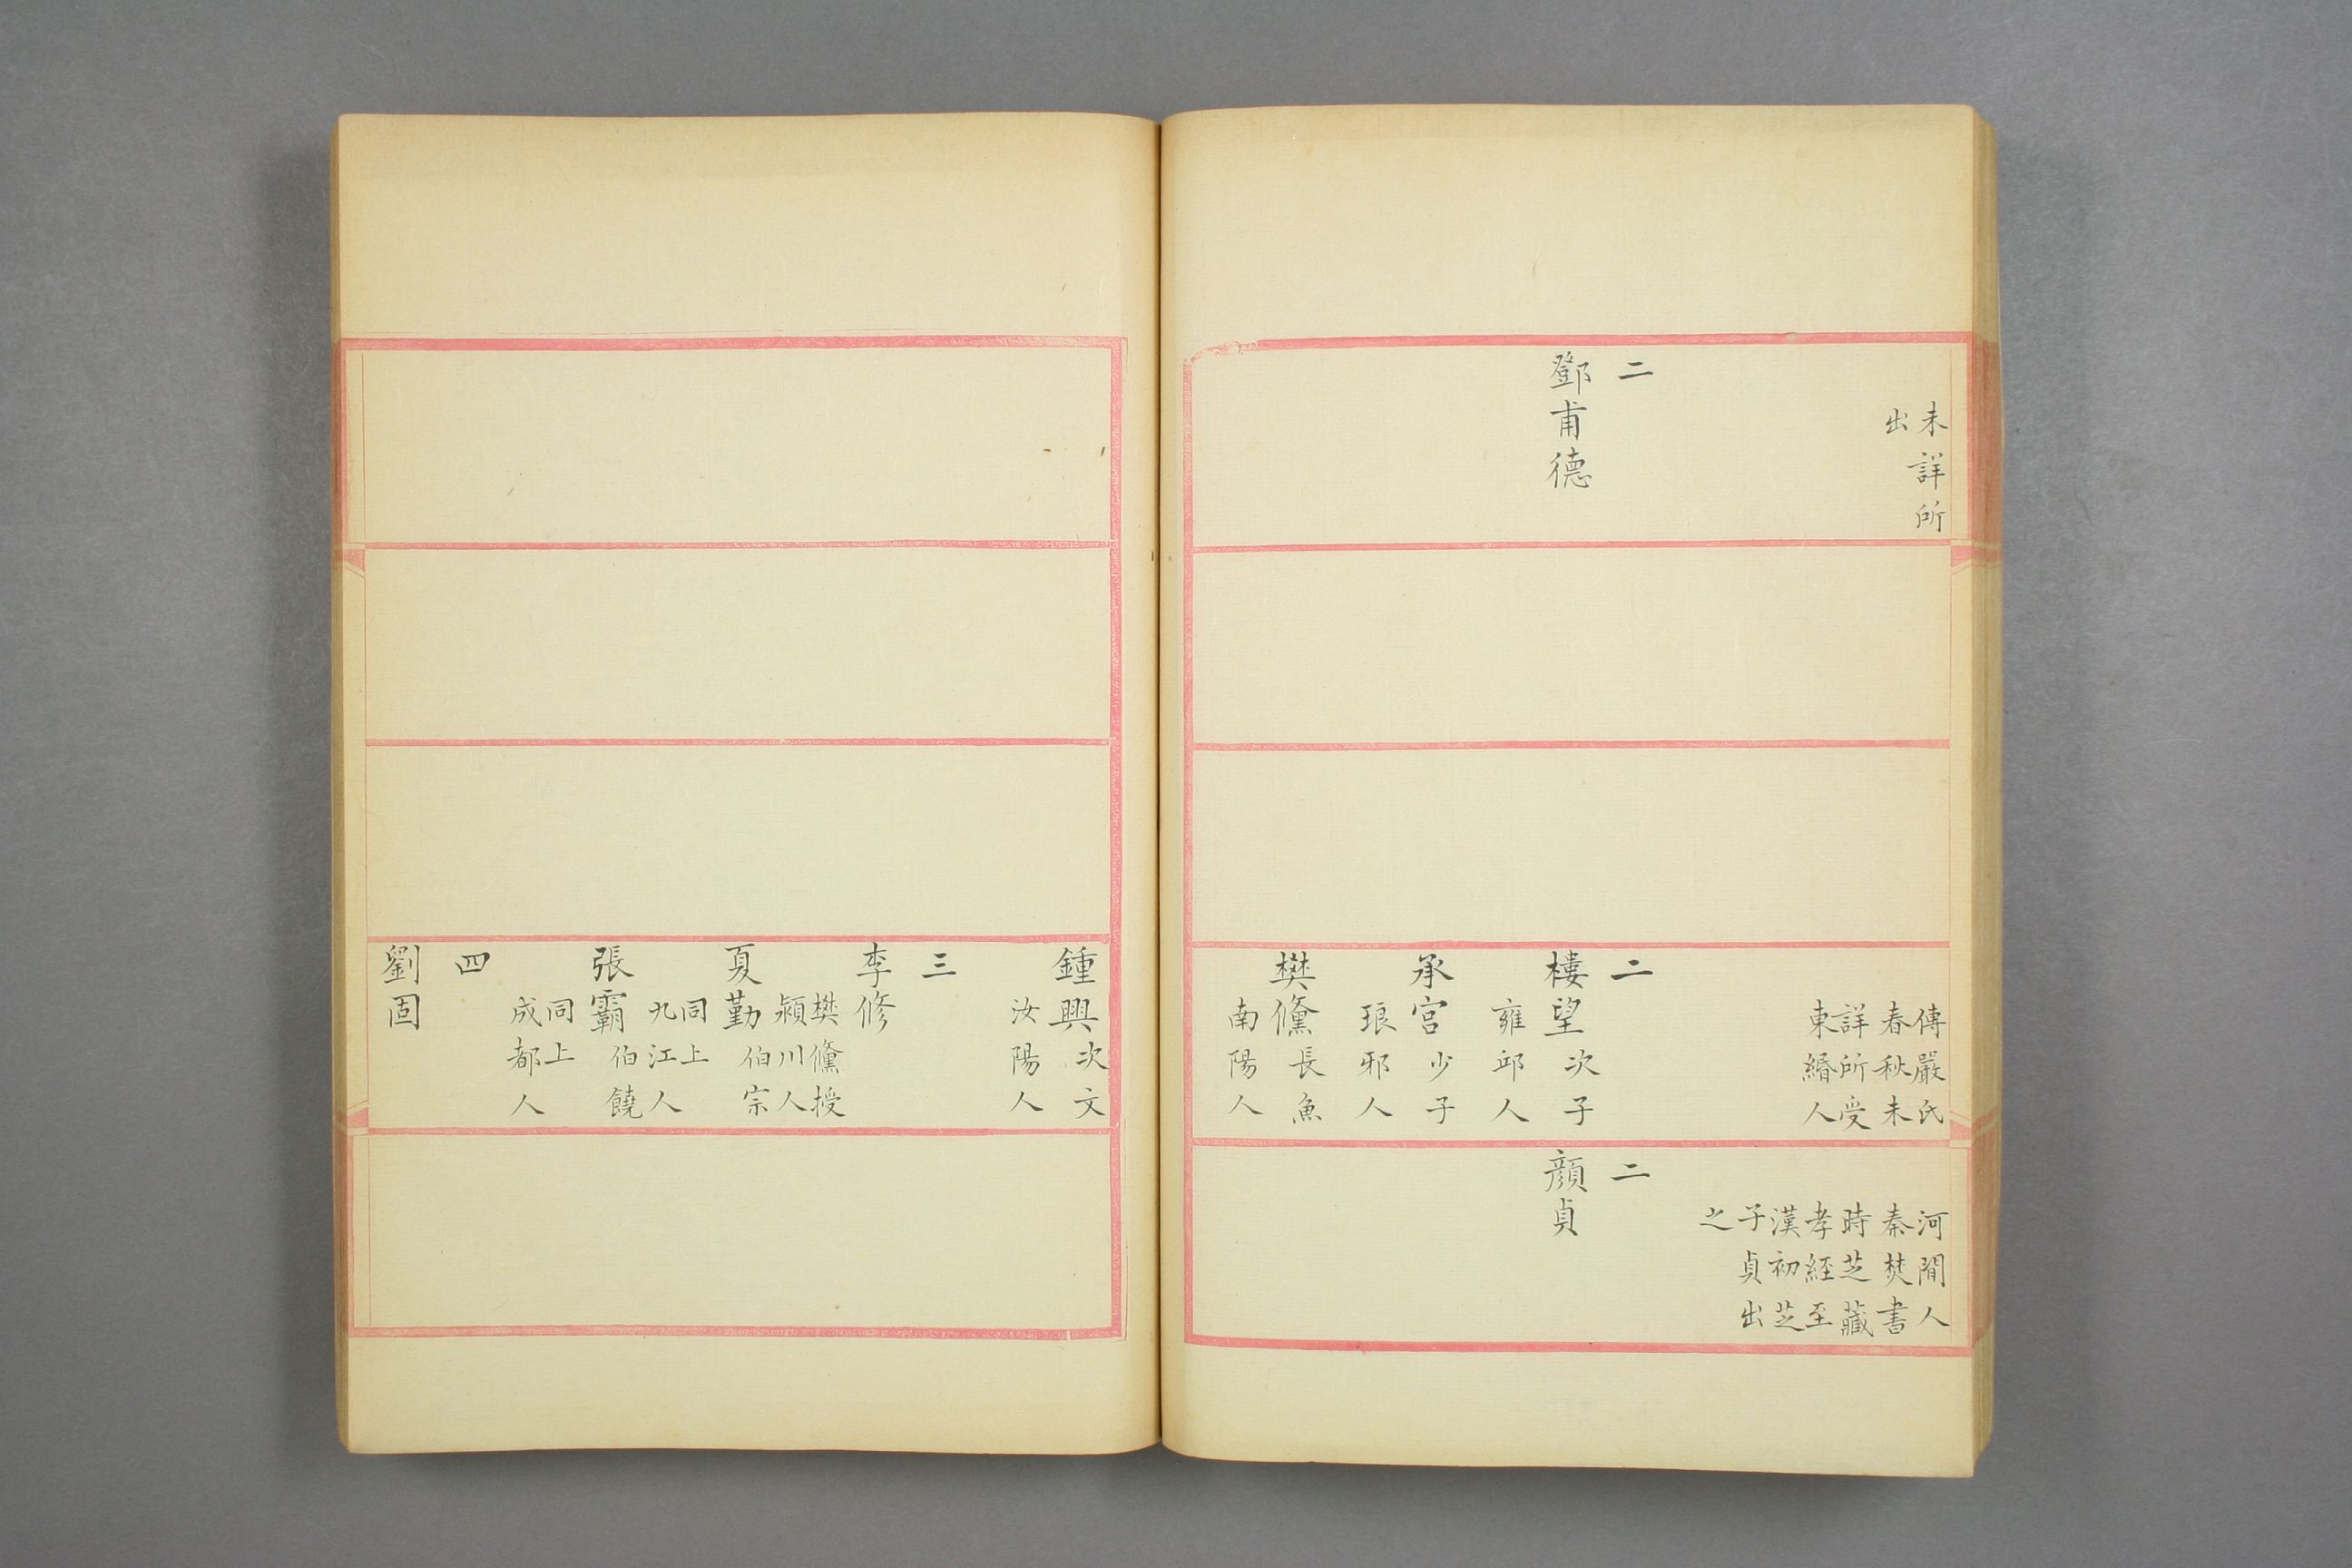 未詳所
出
二
鄧甫德
傳嚴氏
春秋未
詳所受
東緡人
二
樓望次子
雍邱人
承宮少子
琅邪人
樊儵長魚
南陽人
河間人
秦焚書
時芝藏
孝經至
漢初芝
子貞出
之
二
顏貞
鍾興次文
汝陽人
三
李修
樊儵授
潁川人
夏勤伯宗
同上
九江人
張霸伯饒
同上
成都人
四
劉固